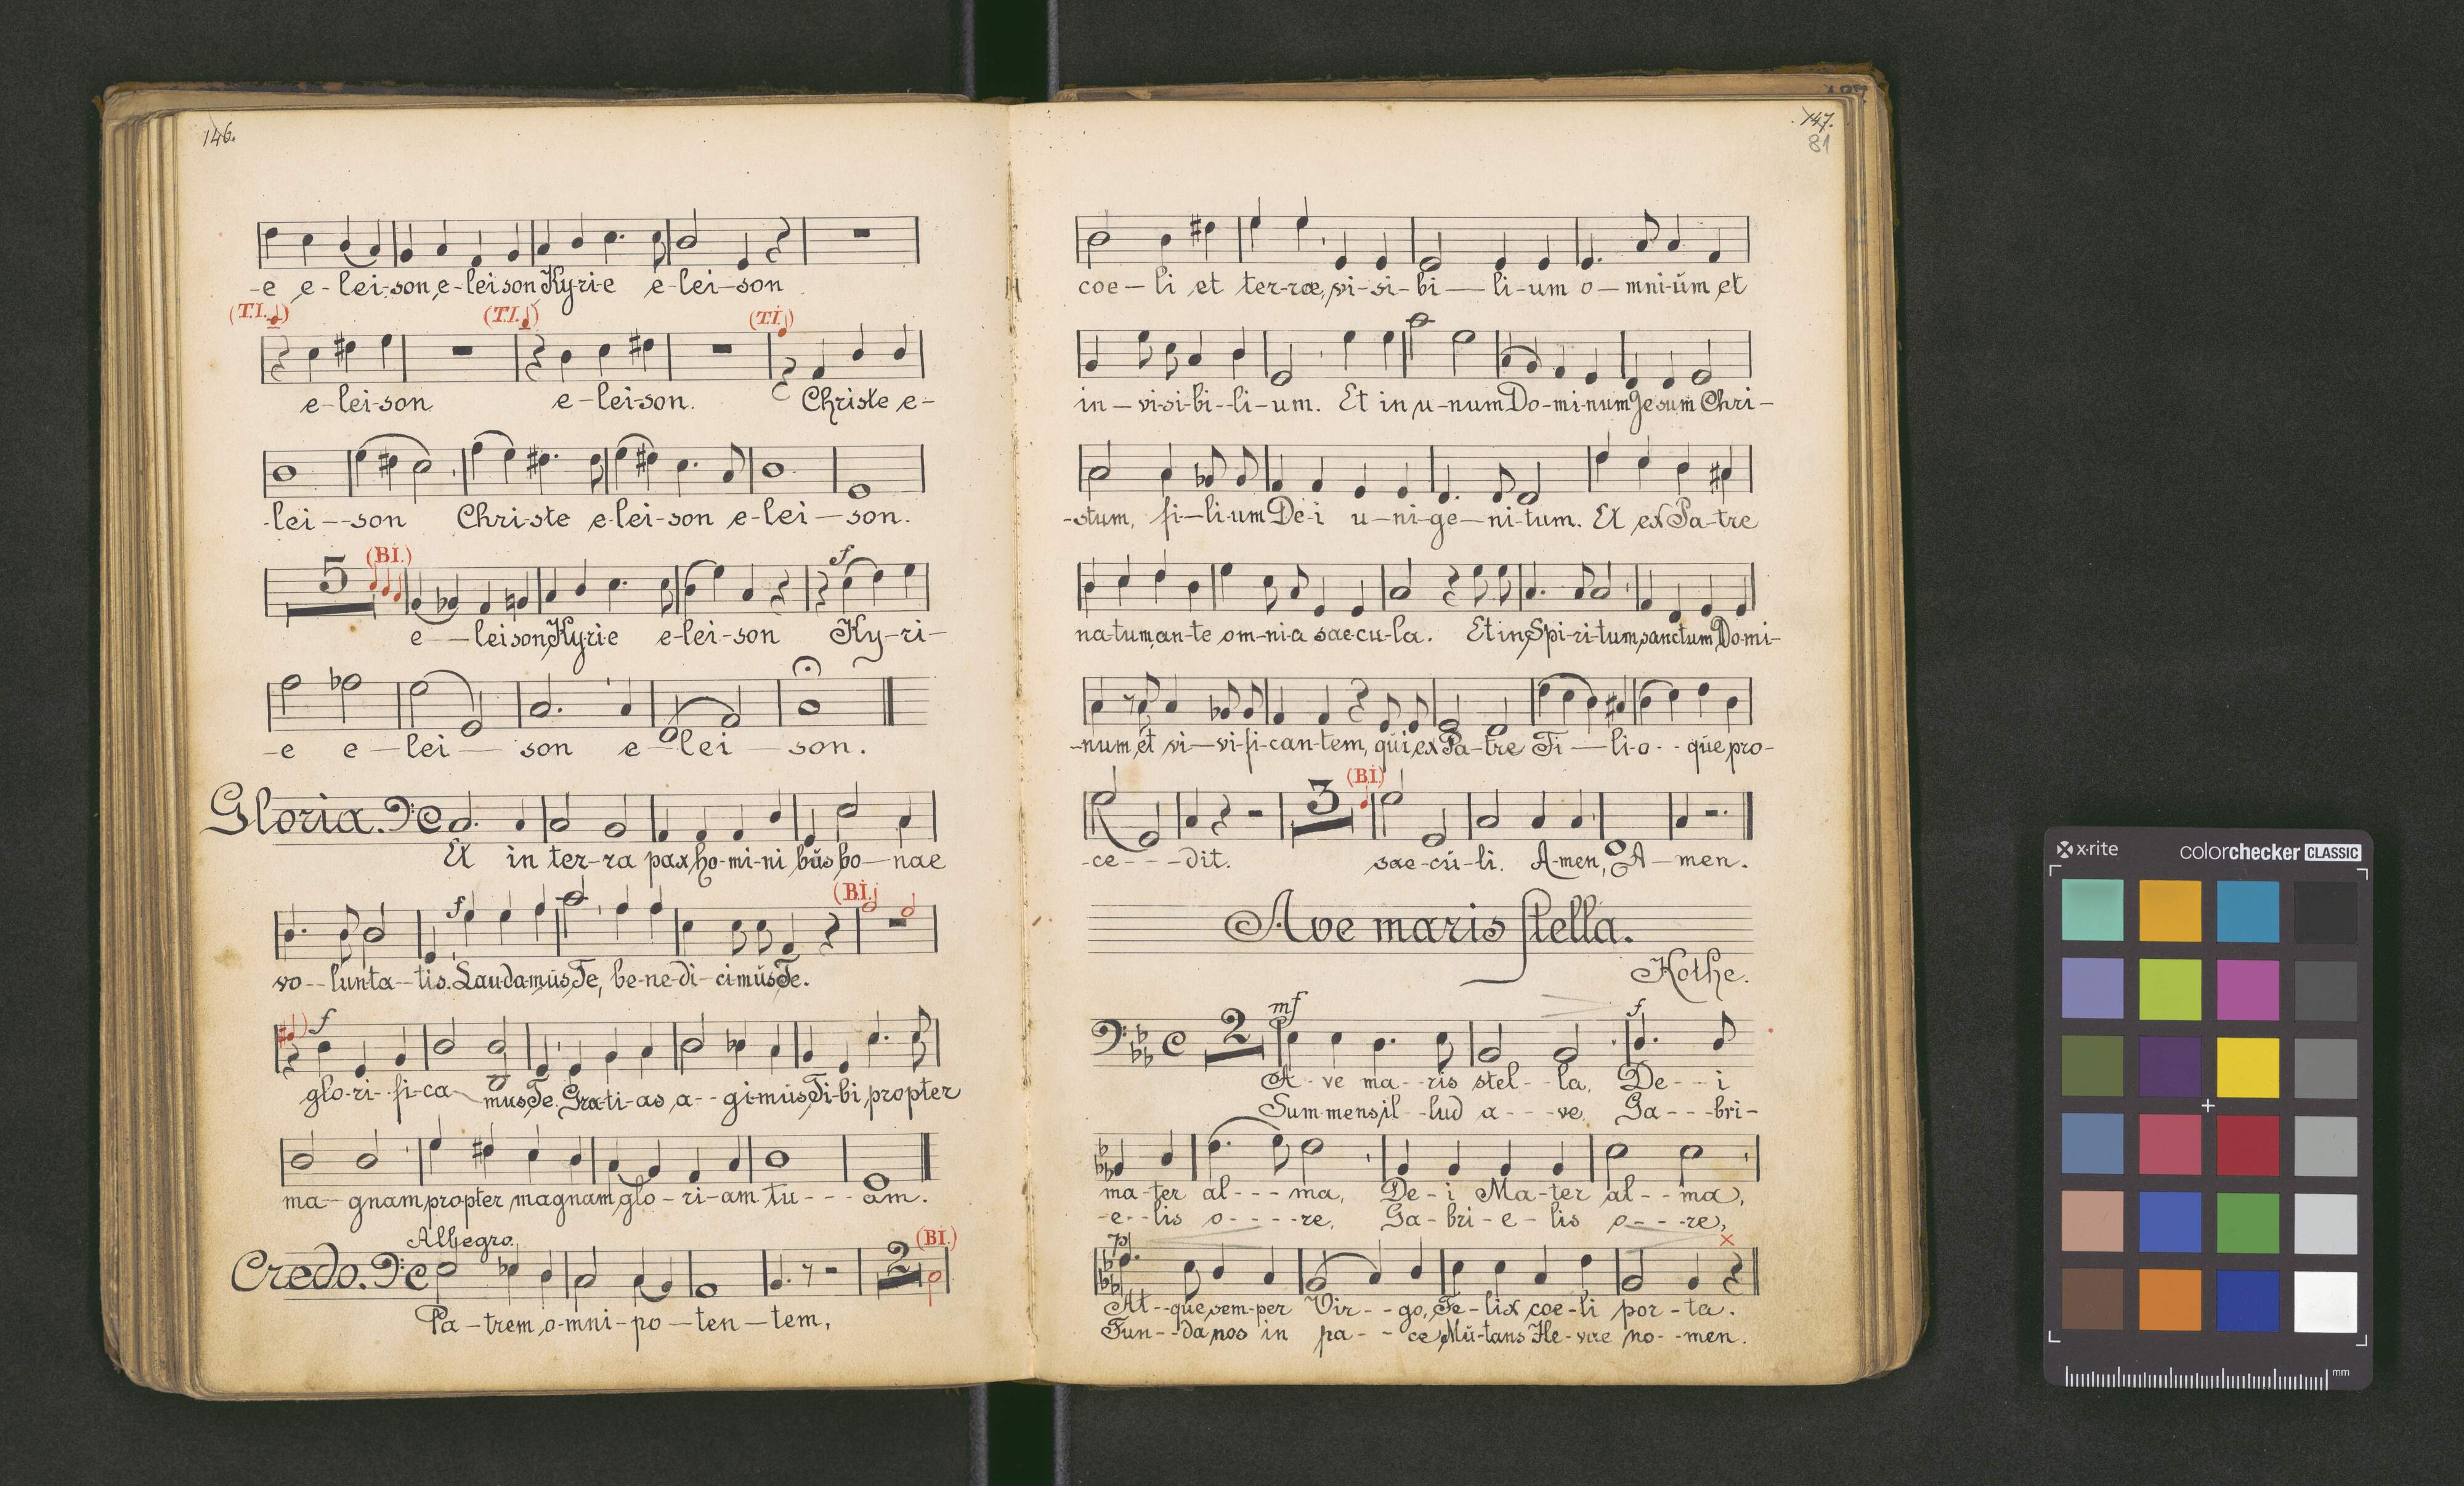 146.
-e e-lei-son, e-leison Ky-ri-e e-lei-son
(T.I.) (T.I.) (T.I.)
e-lei-son. e-lei-son. Christe e-
-lei--son Chri-ste e-lei-son e-lei-son.
5 (BI.) f
e--leison Ky-ri-e e-lei-son Ky-ri-
-e e-lei- son e-lei-son.
Gloria.
Et in ter-ra pax ho-mi-ni bŭs bo-nae
f (B.I.)
vo--lunta--tis. Lau-da-mŭs Te, be-ne-di-ci-mŭs Te.
f
glo-ri--fi-ca- mus Te. Gra-ti-as a--gi-mŭs Ti-bi propter
ma--gnam propter magnam glo-ri-am tu---am.
Allegro.
Credo. 2 (BI.)
Pa-trem o-mni-po-ten-tem,
147.
81
coe-li et ter-rae, vi-si-bi-li-um o-mni-ŭm et
in-vi-si-bi--li-um. Et in u-num Do-mi-num Jesum Chri-
-stum, fi-li-um De-i u-ni-ge-ni-tum. Et ex Pa-tre
na-tum an-te om-ni-a sae-cu-la. Et in Spi-ri-tum sanctum Do-mi-
-num, et vi-vi-fi-can-tem, qŭi ex Pa-tre Fi-li-o--qŭe pro-
3 (B.I.)
-ce---dit. sae-cŭ-li. A-men, A-men.
Ave maris stella.
Kothe.
2 mf f
A-ve ma--ris stel--la, De--i
Sum-mens il--lud a---ve. Ga---bri-
ma-ter al---ma, De-i Ma-ter al--ma,
-e--lis o----re, Ga-bri-e-lis o---re,
p x
At--qŭe sem-per Vir--go, Fe-lix coe-li por-ta.
Fun--da nos in pa--ce Mŭ-tans He-vae no--men.
x·rite colorchecker CLASSIC
mm